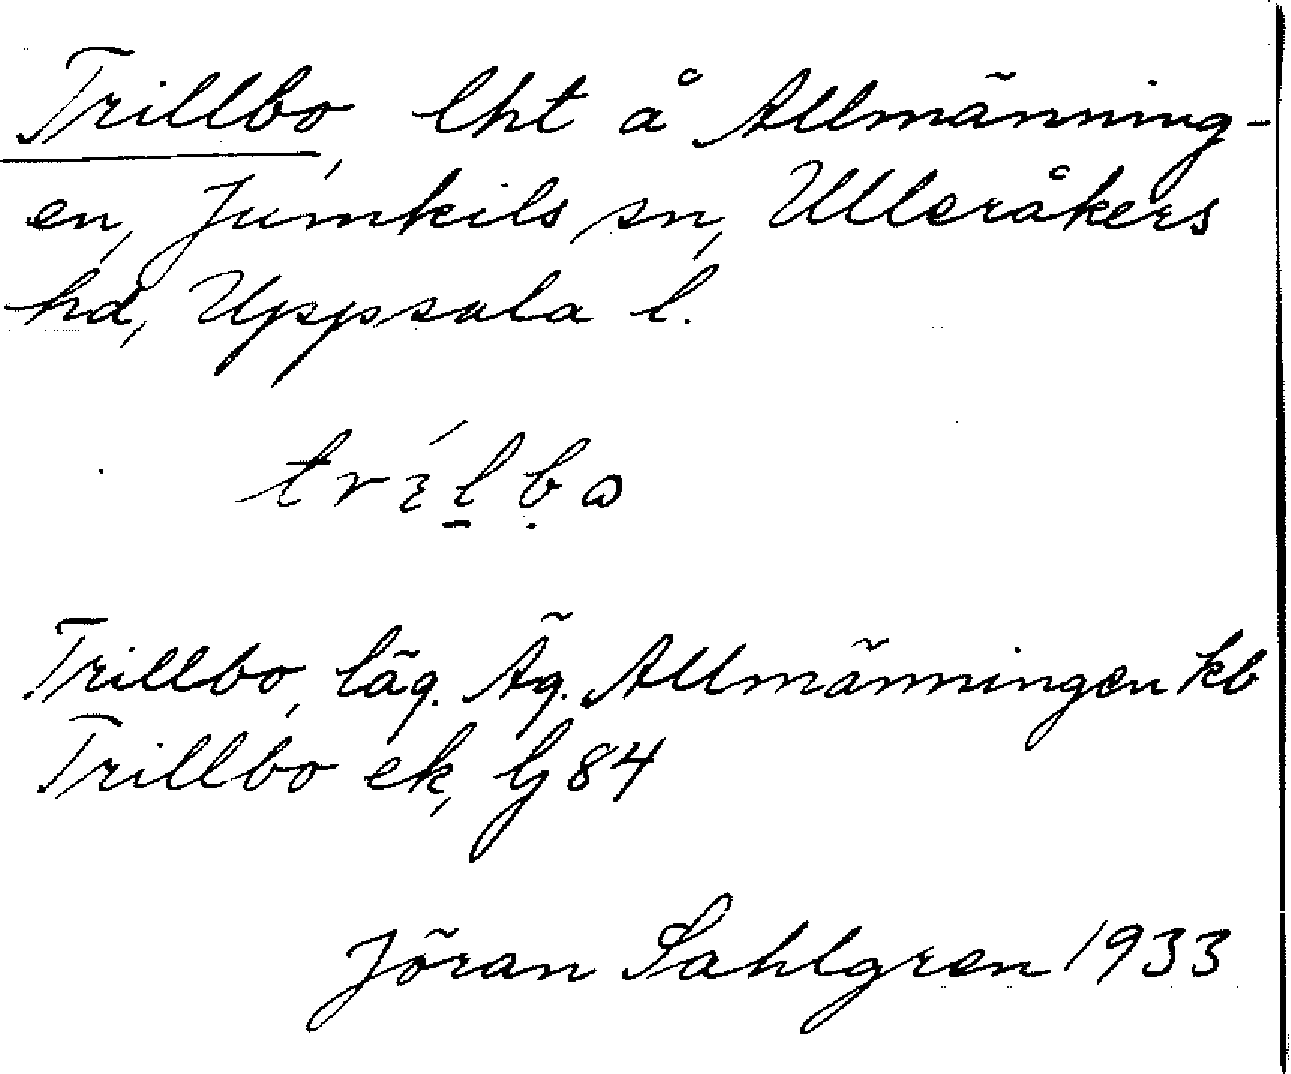 Trillbo, lht å Allmänning-
en, Jumkils sn, Ulleråkers
hd, Uppsala l.
Trillbo, läg. Äg. Allmänningen kb
Trillbo ek, lj 84
Jöran Sahlgren 1933